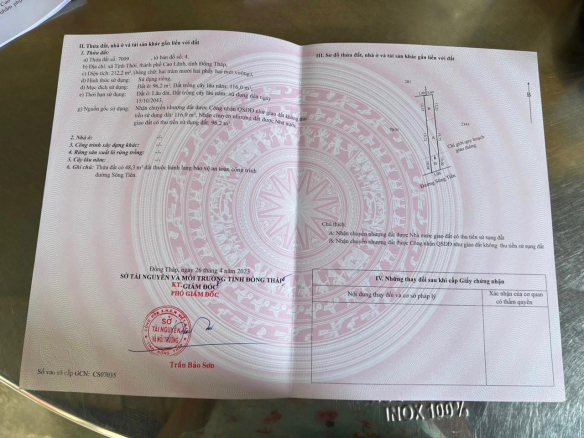 II. Thửa đất, nhà ở và tài sản khác gắn liền với đất
1. Thửa đất:
a) Thửa đất số: 7009 , tờ bản đồ số: 4,
b) Địa chỉ: xã Tịnh Thới, thành phố Cao Lãnh, tỉnh Đồng Tháp,
c) Diện tích: 212,2 m², (bằng chữ: hai trăm mười hai phẩy hai mét vuông),
d) Hình thức sử dụng: Sử dụng riêng,
đ) Mục đích sử dụng: Đất ở: 96,2 m²; Đất trồng cây lâu năm: 116,0 m²,
e) Thời hạn sử dụng: Đất ở: Lâu dài, Đất trồng cây lâu năm: sử dụng đến ngày
15/10/2043,
g) Nguồn gốc sử dụng: Nhận chuyển nhượng đất được Công nhận QSDĐ như giao đất không thu
tiền sử dụng đất: 116,0 m², Nhận chuyển nhượng đất được Nhà nước
giao đất có thu tiền sử dụng đất: 96,2 m²
2. Nhà ở: -/-
3. Công trình xây dựng khác: -/-
4. Rừng sản xuất là rừng trồng: -/-
5. Cây lâu năm: -/-
6. Ghi chú: Thửa đất có 48,3 m² đất thuộc hành lang bảo vệ an toàn công trình
đường Sông Tiên.
Đồng Tháp, ngày 26 tháng 4 năm 2023
SỞ TÀI NGUYÊN VÀ MÔI TRƯỜNG TỈNH ĐỒNG THÁP
KT. GIÁM ĐỐC
PHÓ GIÁM ĐỐC
SỞ
TÀI NGUYÊN
VÀ MÔI TRƯỜNG
Trần Bảo Sơn
Số vào sổ cấp GCN: CS07035
III. Sơ đồ thửa đất, nhà ở và tài sản khác gắn liền với đất
Chỉ giới quy hoạch
giao thông
Đường Sông Tiên
Chú thích:
A: Nhận chuyển nhượng đất được Nhà nước giao đất có thu tiền sử dụng đất
B: Nhận chuyển nhượng đất được Công nhận QSDĐ như giao đất không thu tiền sử dụng đất
IV. Những thay đổi sau khi cấp Giấy chứng nhận
Nội dung thay đổi và cơ sở pháp lý
Xác nhận của cơ quan
có thẩm quyền
INOX 100%